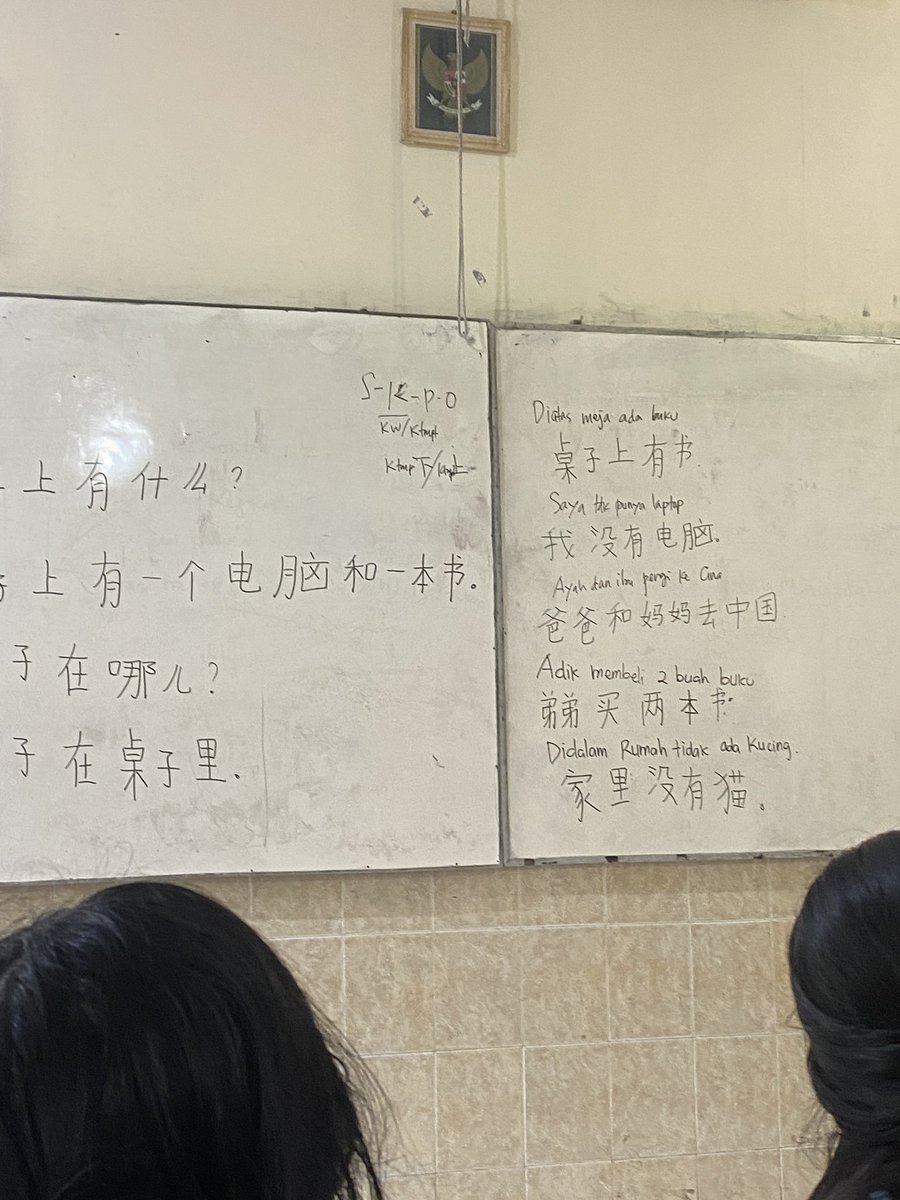 S-K-P-O
KW/Ktmpt
上有什么?
上有一个电脑和一本书。
子在哪儿?
子在桌子里.
Diatas meja ada buku
桌子上有书.
Saya tdk punya laptop
我没有电脑.
Ayah dan ibu pergi ke Cina
爸爸和妈妈去中国.
Adik membeli 2 buah buku
弟弟买两本书.
Didalam Rumah tidak ada Kucing.
家里没有猫。